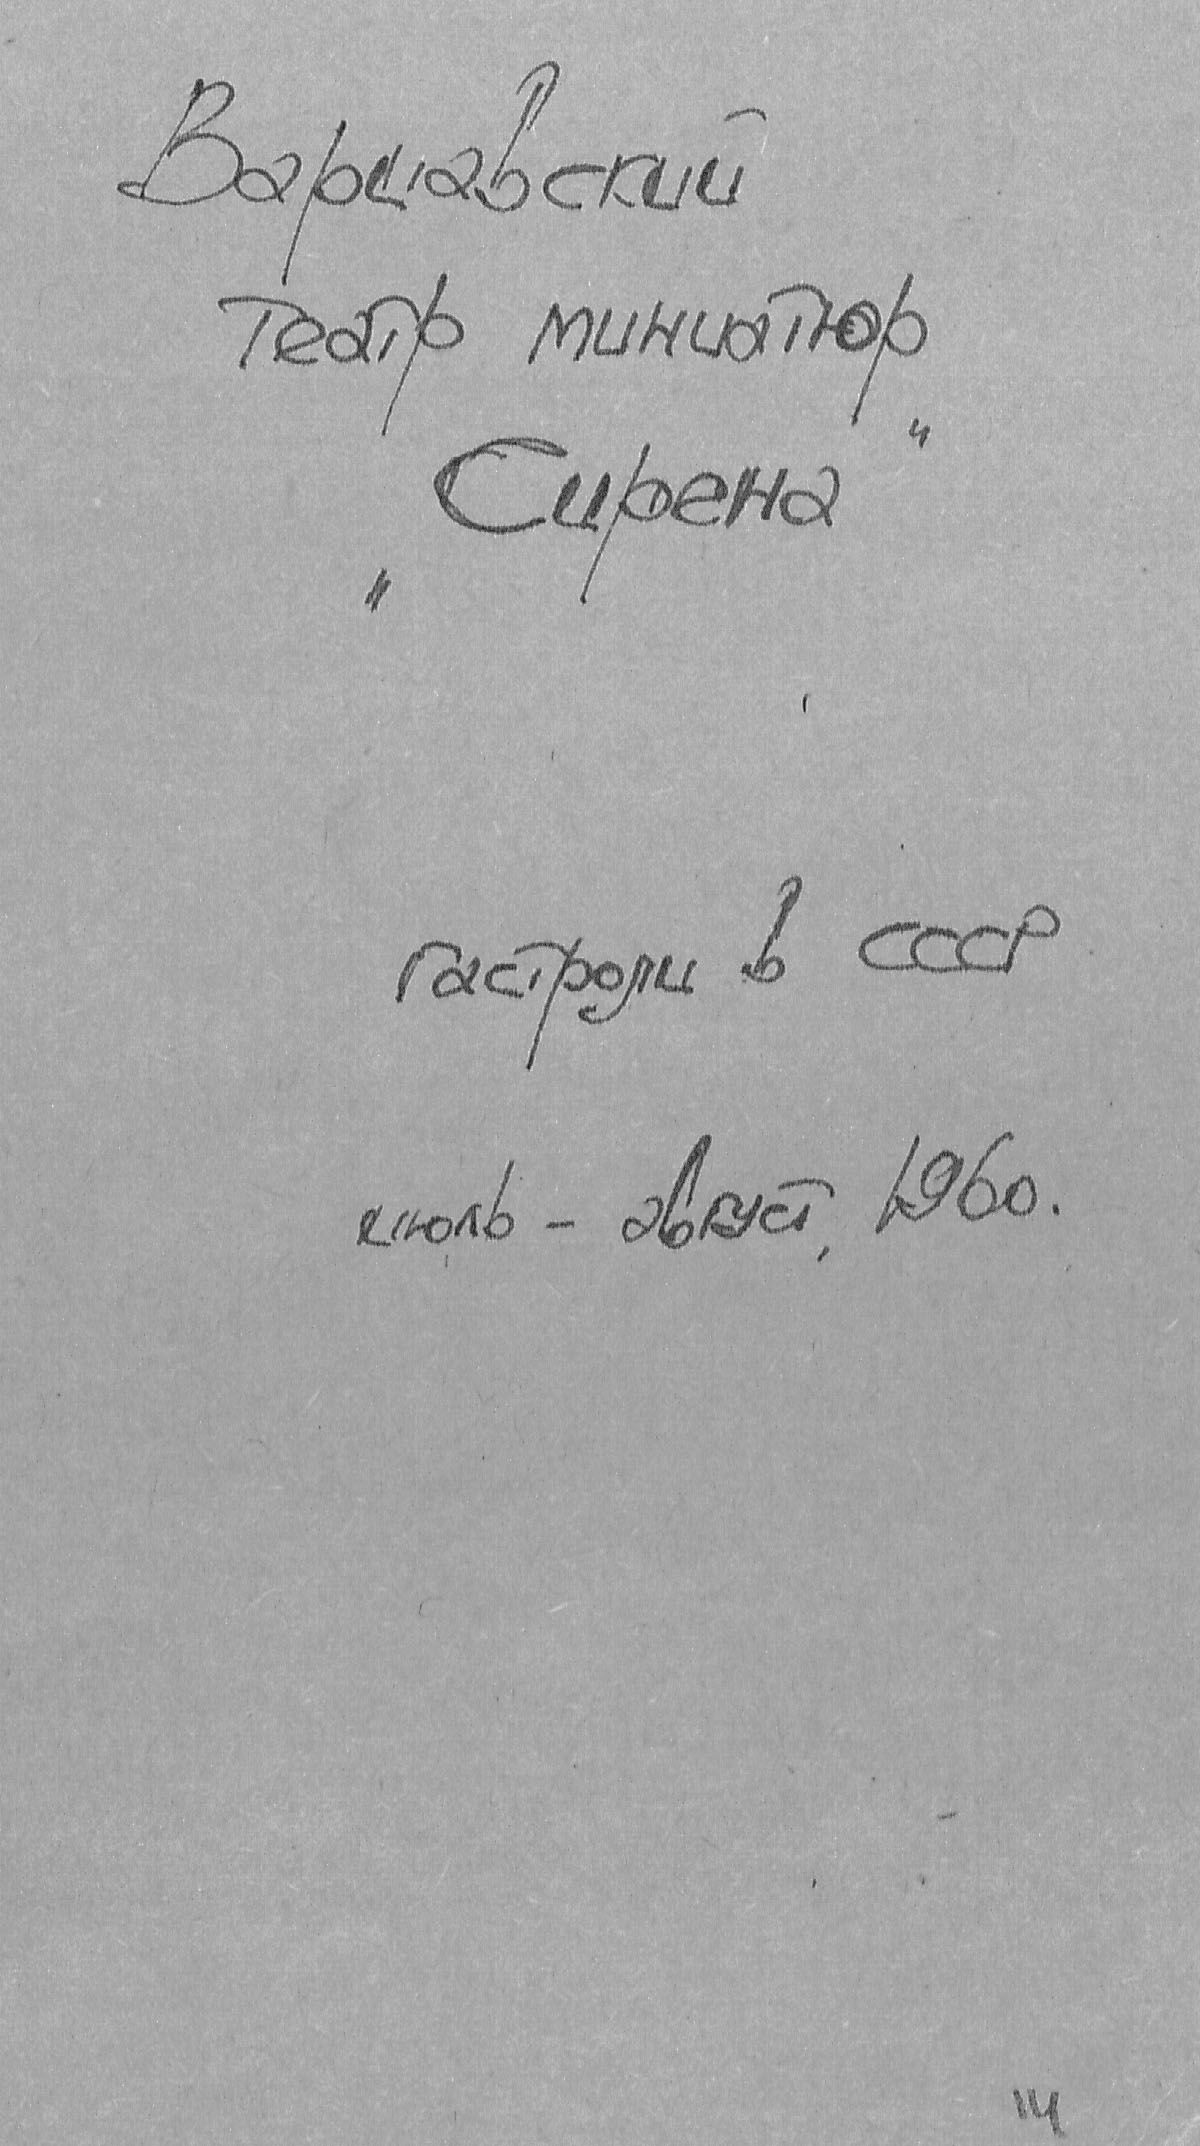 Варшавский
театр миниатюр
„Сирена"
гастроли в СССР
июль - август, 1960.
14